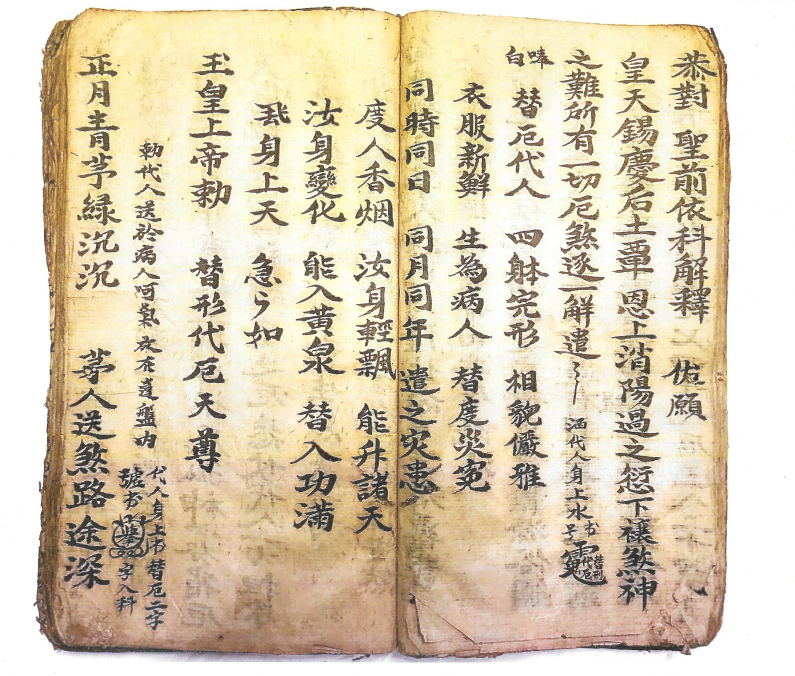 恭對 聖前依科解釋 伏願
皇天錫慶后土覃 恩上消陽過之愆下禳煞神
之難所有一切厄煞逐一解遣
洒代人身上水
白 替厄代人 四躰完形 相貌儼雅
衣服新鮮 生為病人 替度災寃
同時同日 同月同年 遣之灾患
度人香烟 汝身輕飄 能升諸天
汝身變化 能入黄泉 替入功滿
身上天 急々如
玉皇上帝勑 替形代厄天尊
勑代人送於病人呵氣放在蓬盤内
代人身上书替厄二字
號书
字入料
正月青茅綠沉沉 茅人送煞路途深